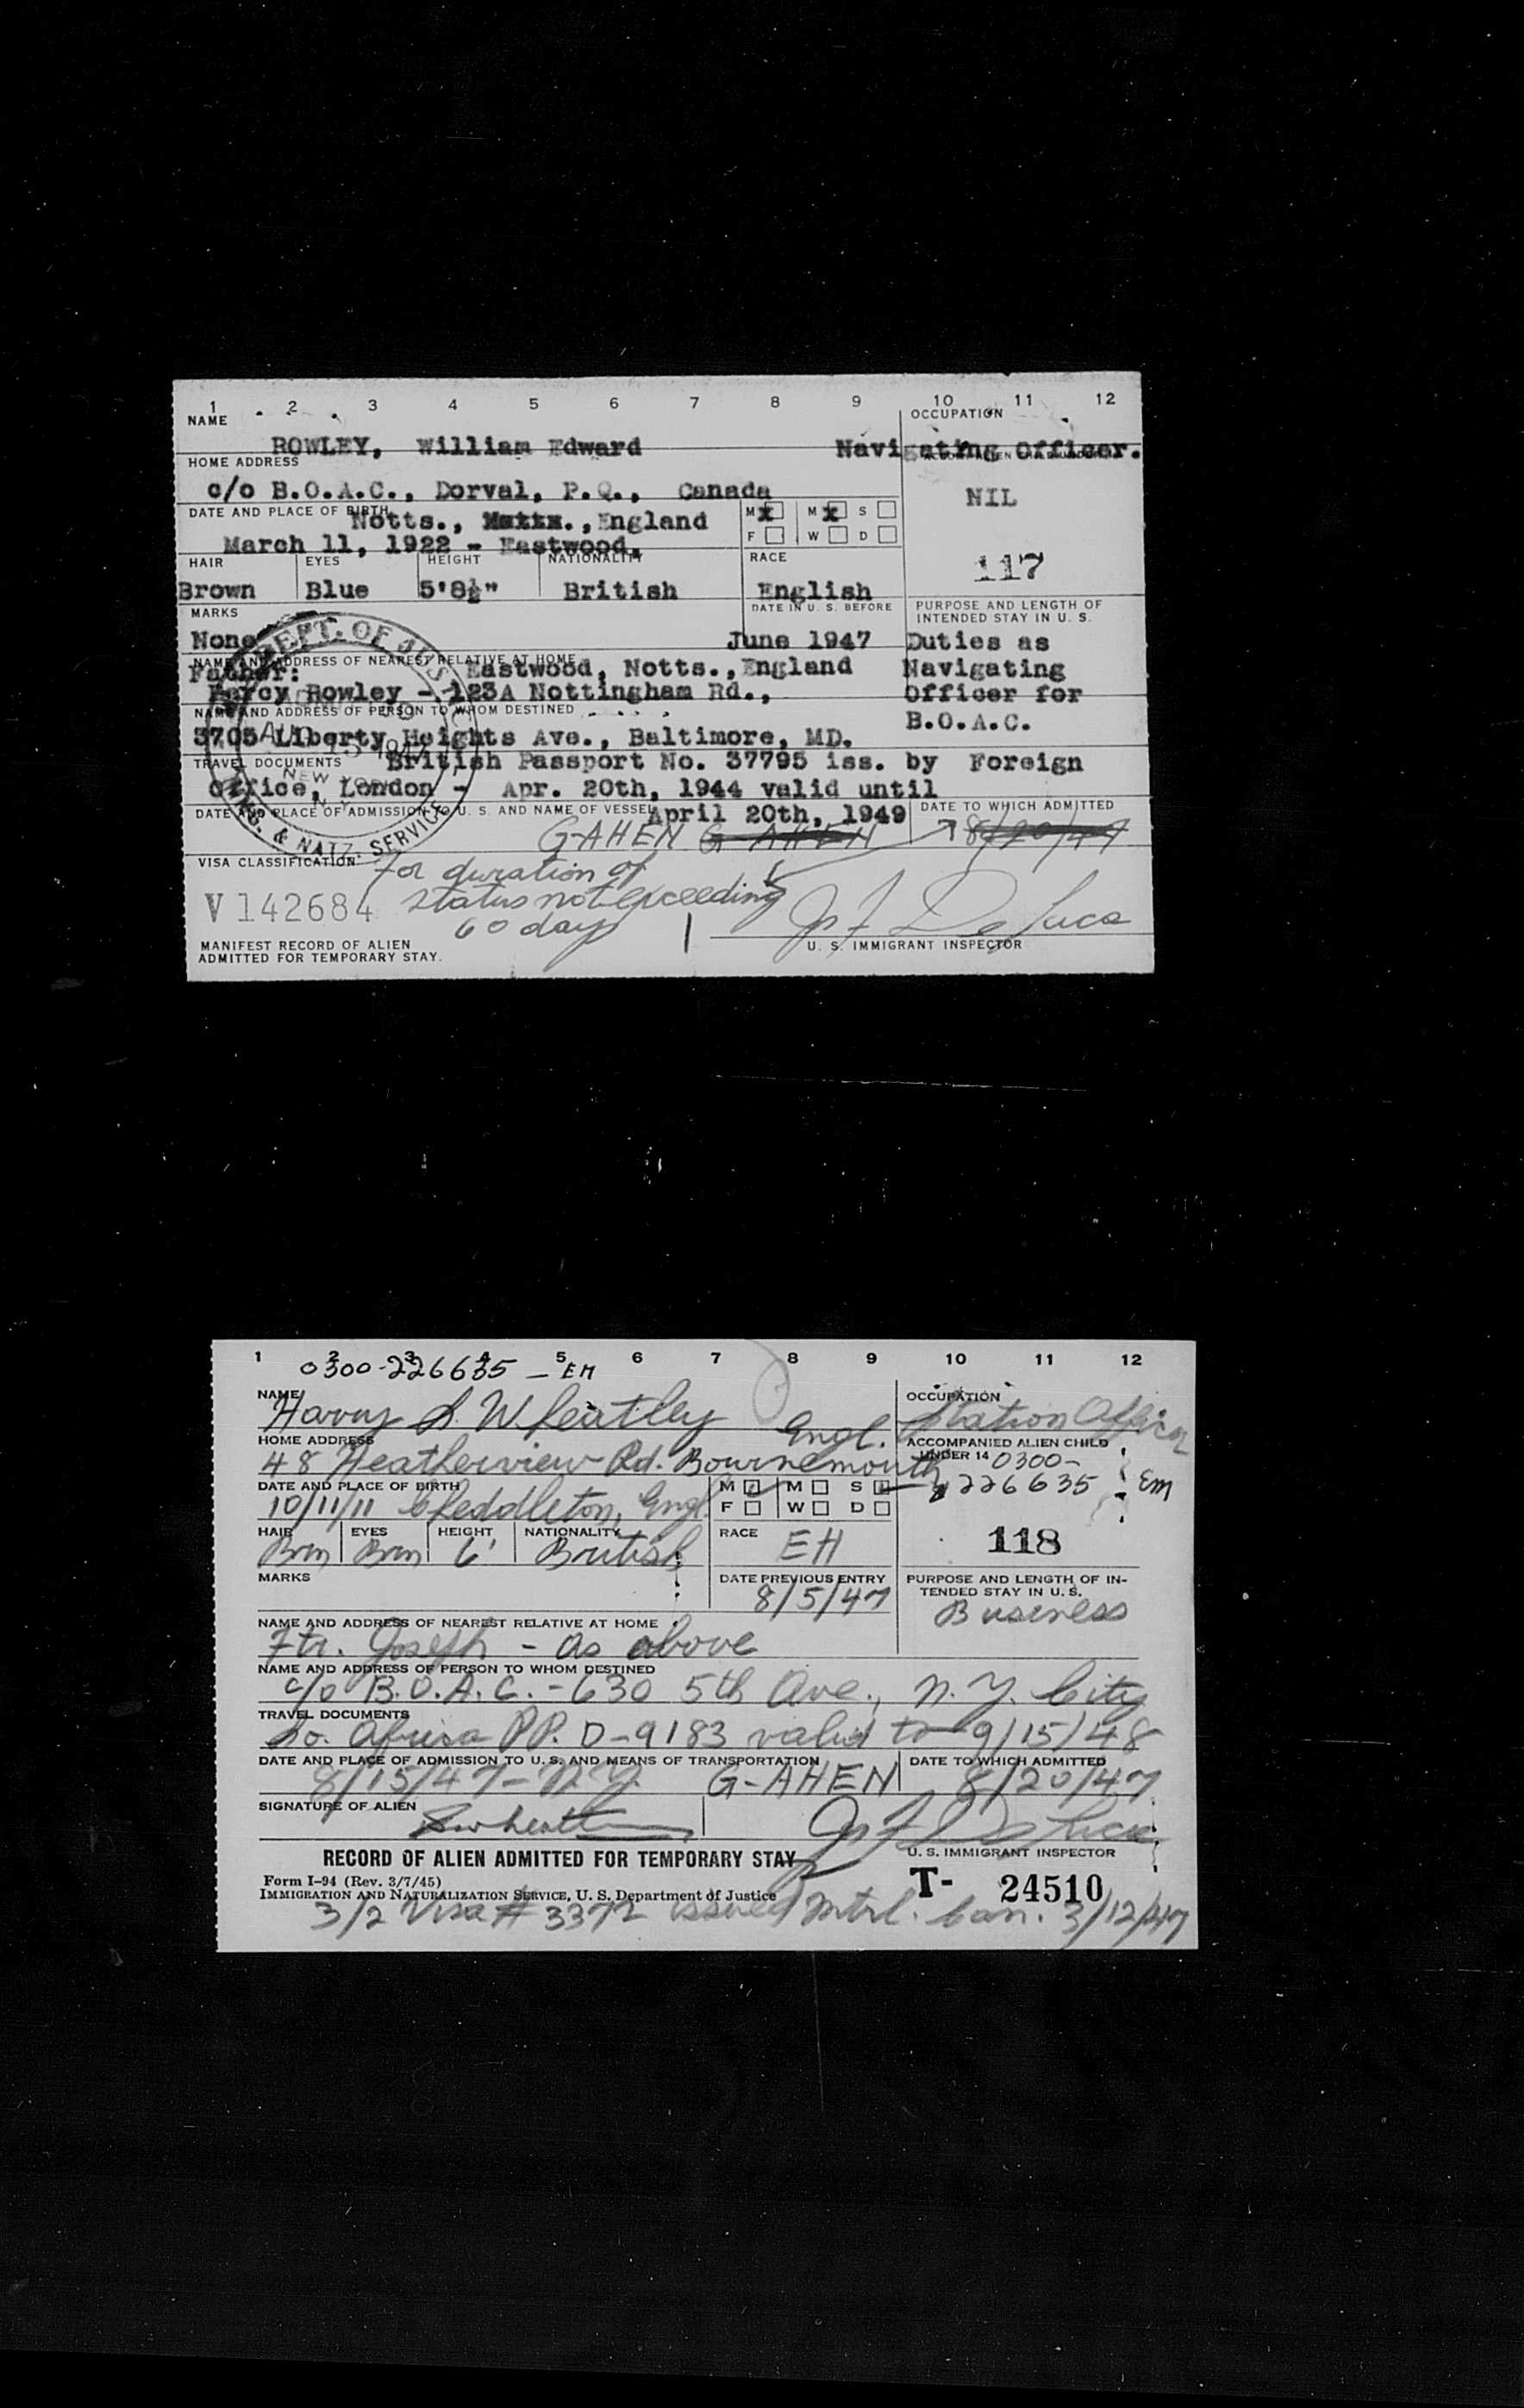 1 2 3 4 5 6 7 8 9 10 11 12
NAME OCCUPATION
ROWLEY, William Edward Navigating Officer.
HOME ADDRESS
c/o B.O.A.C., Dorval, P.Q., Canada NIL
DATE AND PLACE OF BIRTH Notts., England M x M x S
March 11, 1922 - Eastwood, F W D
HAIR EYES HEIGHT NATIONALITY RACE 117
Brown Blue 5'8½" British English
MARKS DATE IN U. S. BEFORE PURPOSE AND LENGTH OF INTENDED STAY IN U. S.
None June 1947 Duties as
NAME AND ADDRESS OF NEAREST RELATIVE AT HOME
Father: Eastwood, Notts., England Navigating
Percy Rowley - 123A Nottingham Rd., Officer for
NAME AND ADDRESS OF PERSON TO WHOM DESTINED B.O.A.C.
3705 Liberty Heights Ave., Baltimore, MD.
TRAVEL DOCUMENTS British Passport No. 37795 iss. by Foreign
Office, London - Apr. 20th, 1944 valid until
DATE AND PLACE OF ADMISSION TO U. S. AND NAME OF VESSEL April 20th, 1949 DATE TO WHICH ADMITTED
G-AHEN G-AHEN 8/20/47
VISA CLASSIFICATION for duration of
V 142684 status not exceeding
60 days Jos F De Luca
MANIFEST RECORD OF ALIEN U. S. IMMIGRANT INSPECTOR
ADMITTED FOR TEMPORARY STAY.
DEPT. OF JUSTICE
AUG 15 1947
NEW YORK
N.Y.
& NATZ. SERVICE
1 2 3 4 5 6 7 8 9 10 11 12
0300-226635 - EM
NAME OCCUPATION
Harry S. Wheatley Engl. Station Officer
HOME ADDRESS ACCOMPANIED ALIEN CHILD UNDER 14
48 Heatherview Rd. Bournemouth 0300-
DATE AND PLACE OF BIRTH M M S 226635 Em
10/11/11 Cheddleton, Engl. F W D
HAIR EYES HEIGHT NATIONALITY RACE 118
Brn Brn 6' British EH
MARKS DATE PREVIOUS ENTRY PURPOSE AND LENGTH OF IN-
TENDED STAY IN U. S.
8/5/47 Business
NAME AND ADDRESS OF NEAREST RELATIVE AT HOME
Ftr. Joseph - as above
NAME AND ADDRESS OF PERSON TO WHOM DESTINED
c/o B.O.A.C. - 630 5th Ave., N.Y. City
TRAVEL DOCUMENTS
So. Africa P.P. D-9183 valid to 9/15/48
DATE AND PLACE OF ADMISSION TO U. S. AND MEANS OF TRANSPORTATION DATE TO WHICH ADMITTED
8/15/47 - N.Y. G-AHEN 8/20/47
SIGNATURE OF ALIEN Jos F De Luca
RECORD OF ALIEN ADMITTED FOR TEMPORARY STAY U. S. IMMIGRANT INSPECTOR
Form I-94 (Rev. 3/7/45) T- 24510
IMMIGRATION AND NATURALIZATION SERVICE, U. S. Department of Justice
3/2 Visa # 3372 issued Mtrl. Can. 3/12/47